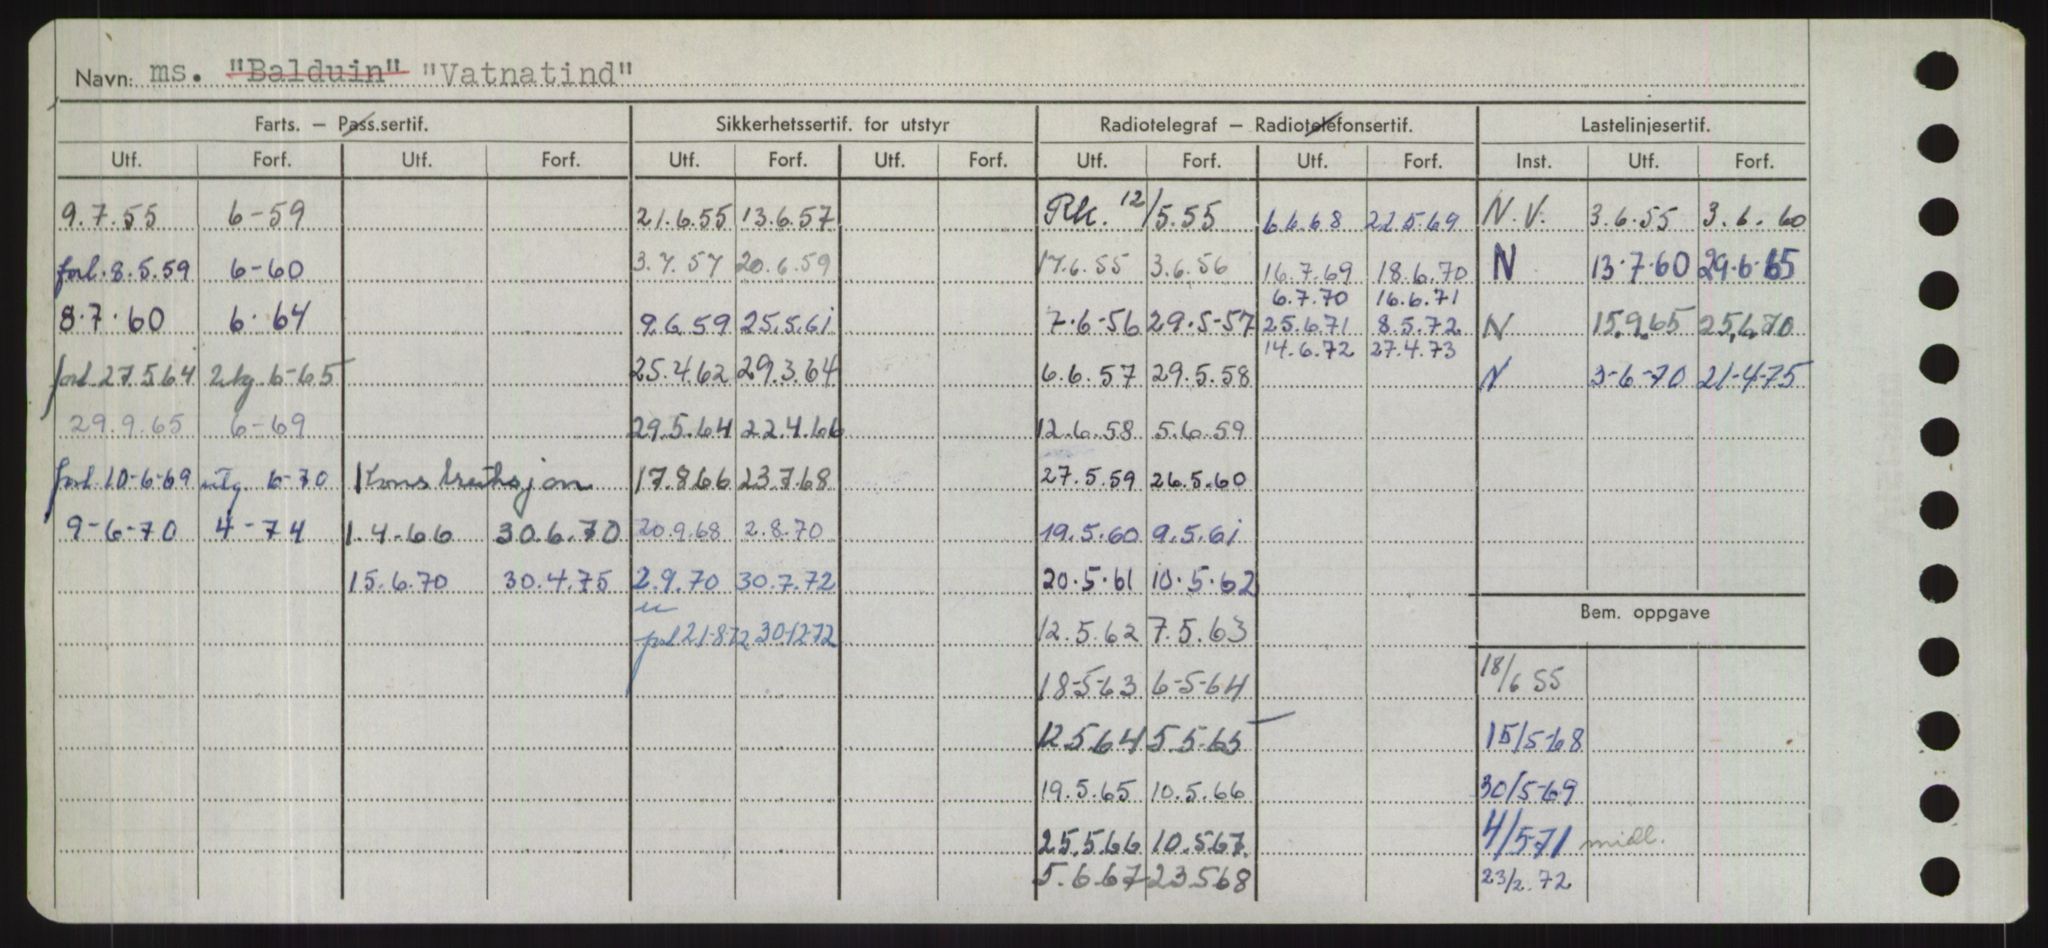 Navn: ms. "Balduin" "Vatnatind"
Farts. — Pass.sertif. Sikkerhetssertif. for utstyr Radiotelegraf — Radiotelefonsertif. Lastelinjesertif.
Utf. Forf. Utf. Forf. Utf. Forf. Utf. Forf. Utf. Forf. Utf. Forf. Inst. Utf. Forf.
9.7.55 6-59 21.6.55 13.6.57 RK. 12/5.55 6.6.68 22.5.69 N.V. 3.6.55 3.6.60
forl. 8.5.59 6-60 3.7.57 20.6.59 17.6.55 3.6.56 16.7.69 18.6.70 N 13.7.60 29.6.65
6.7.70 16.6.71
8.7.60 6.64 9.6.59 25.5.61 7.6-56 29.5-57 25.6.71 8.5.72 N 15.9.65 25.6.70
14.6.72 27.4.73
forl. 27.5.64 6-65 25.4.62 29.3.64 6.6.57 29.5.58 N 3-6-70 21-4-75
29.9.65 6-69 29.5.64 22.4.66 12.6.58 5.6.59
forl. 10-6-69 6-70 Konstruksjon 17.8.66 23.7.68 27.5.59 26.5.60
9-6-70 4-74 1.4.66 30.6.70 20.9.68 2.8.70 19.5.60 9.5.61
15.6.70 30.4.75 2.9.70 30.7.72 20.5.61 10.5.62
Bem. oppgave
forl 21-8-72 30-12-72 12.5.62 7.5.63
18-5-63 6-5-64 18/6 55
12.5.64 5.5.65 15/5-68
19.5.65 10.5.66 30/5-69
25.5.66 10.5.67. 4/5-71 midl.
5.6.67 23.5.68 23/2.72